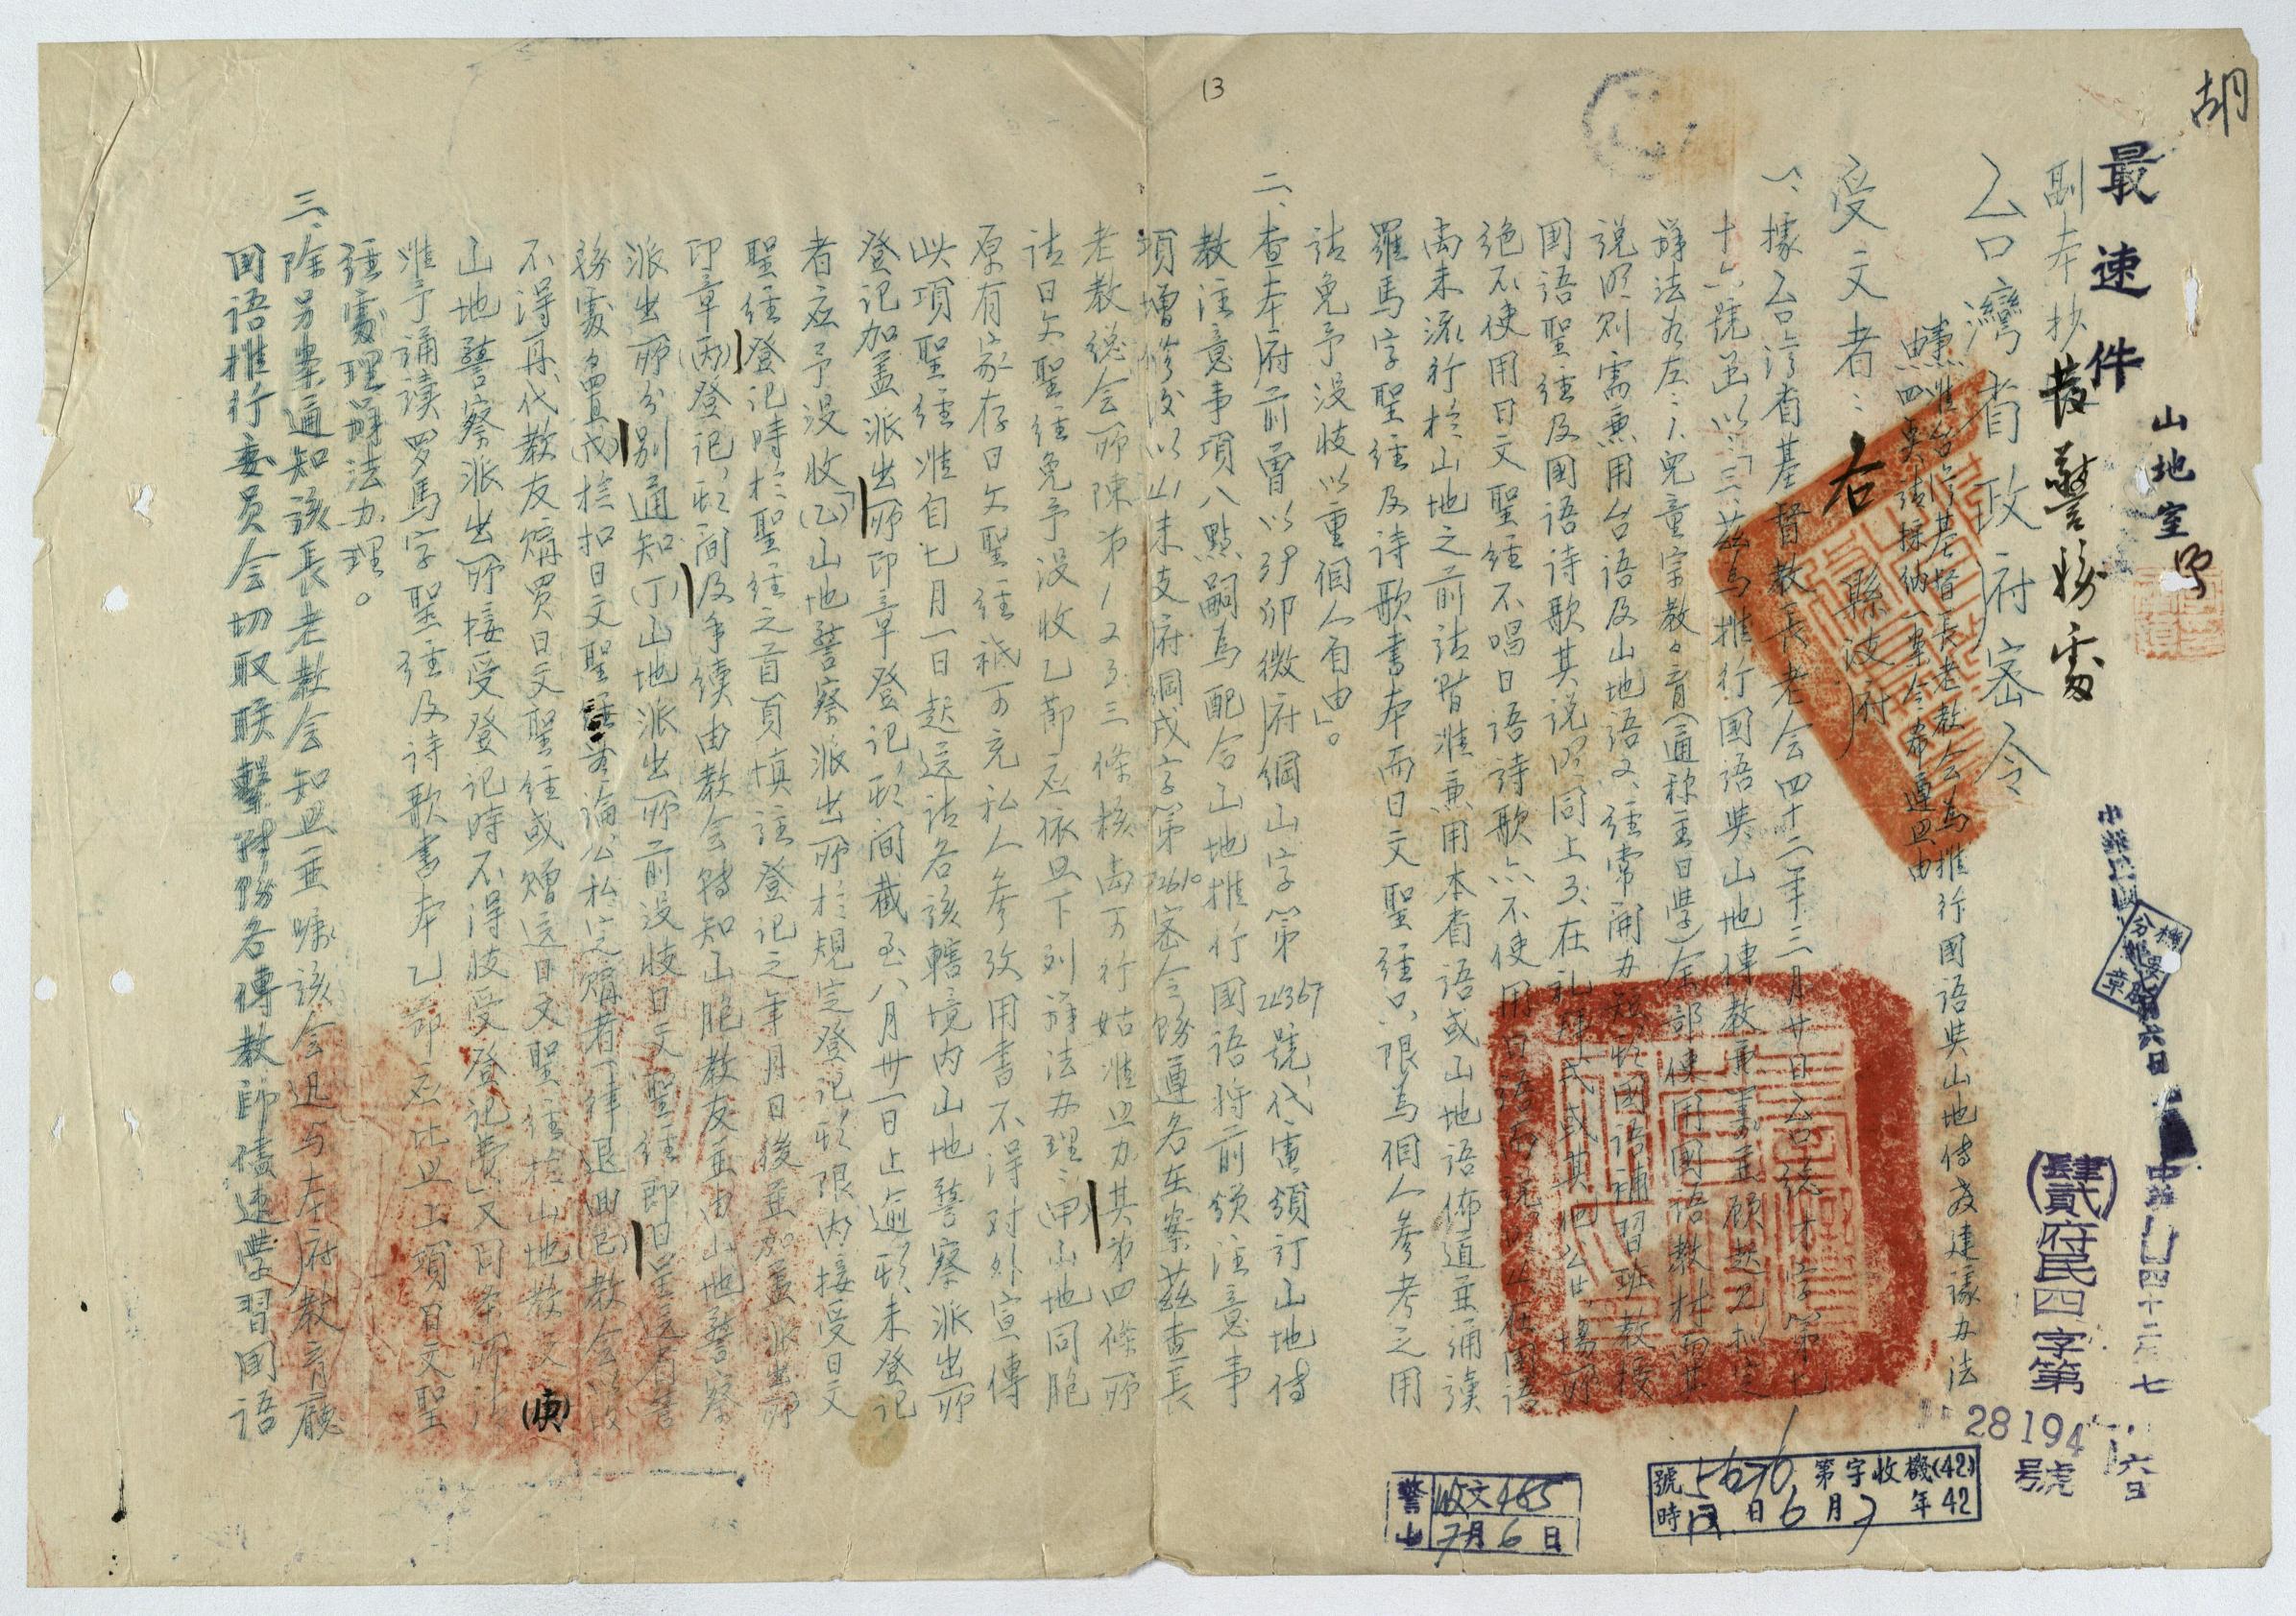 胡
最速件
山地室
副本抄發警務處
台灣省政府密令
受文者：右縣政府
據准台灣基督長老教会為推行國語與山地傳教建議办法
四點請採納一案令希遵照由
中華民國四十二年七月六日
(肆貳)府民四字第
28194號
一、據台灣省基督教長老会四十二年三月廿日台總才字第七
十六號函以：「三、茲為推行國語與山地傳教兼重並顧起見擬定
辦法如左：1.兒童宗教々育（通称主日學）全部使用國語教材而其
說明則需兼用台語及山地語2.經常開办短期國語補習班教授
國語聖經及國語詩歌其說明同上3.在礼拜式或其他公共場所
絕不使用日文聖經不唱日語詩歌亦不使用日語而說明4.在國語
尚未流行於山地之前請暫准兼用本省語或山地語佈道並誦讀
羅馬字聖經及詩歌書本而日文聖經只限為個人參考之用
請免予没收以重個人自由」。
二、查本府前曾以39卯微府綱山字第22367號代電頒訂山地傳
教注意事項八點嗣為配合山地推行國語將前頒注意事
項增修後以41未支府綱戌字第72610密令飭遵各在案茲查長
老教総会所陳第1 2 3三條核尚可行姑准照办其第四條所
請日文聖經免予没收乙節应依照下列辦法办理：（甲）山地同胞
原有家存日文聖經祇可充私人參攷用書不得对外宣傳
此項聖經准自七月一日起送請各該轄境内山地警察派出所
登记加盖派出所印章登记期间截至八月卅一日止逾期未登记
者应予没收（乙）山地警察派出所於規定登记期限内接受日文
聖經登记時於聖經之首頁填註登记之年月日後並加盖派出所
印章（丙）登记期间及手續由教会轉知山胞教友並由山地警察
派出所分别通知（丁）山地派出所前没收日文聖經即日呈送省警
務處處置（戊）檢扣日文聖經無論公私定購者一律退囬（己）教会以後
不得再代教友購買日文聖經或贈送日文聖經於山地教友（庚）
山地警察派出所接受登记時不得收受登记費」又同条所請
准予誦读罗馬字聖經及诗歌書本乙節应比照上項日文聖
經處理辦法办理。
三、除另案通知該長老教会知照並囑該会迅与本府教育廳
国语推行委员会切取联繫並飭各傳教師儘速學習國語
機要分類章
13
(42)機收字第5676號
42年7月6日 時
警山
收文465
7月6日